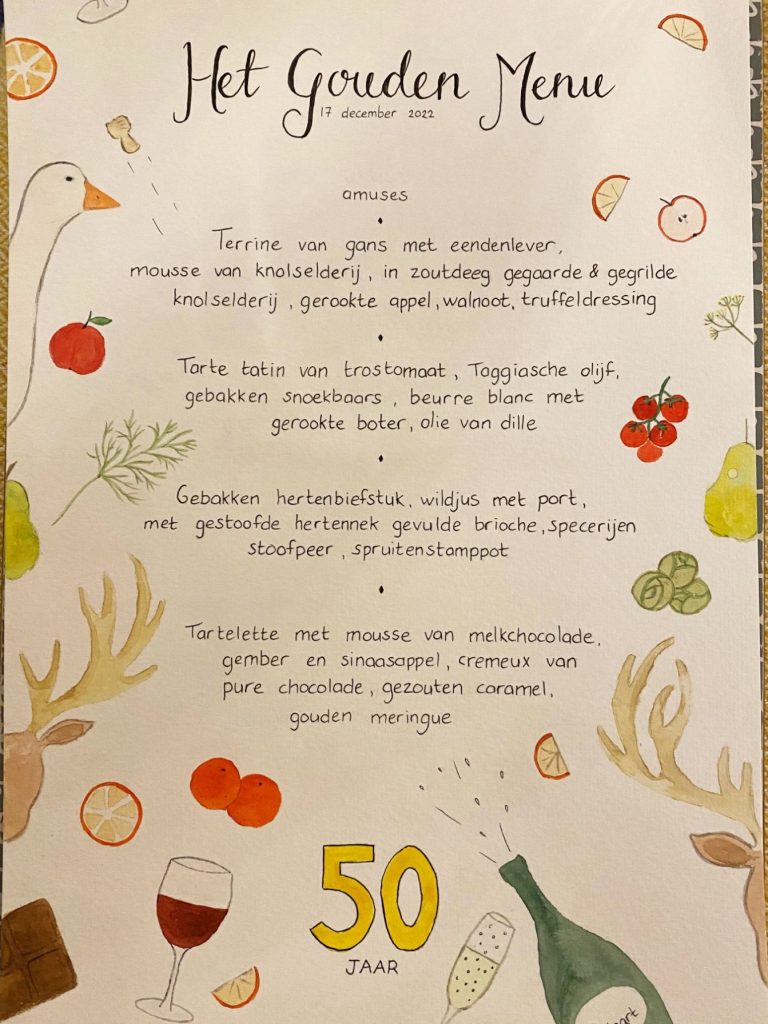 Het Gouden Menu
17 december 2022
amuses
Terrine van gans met eendenlever,
mousse van knolselderij, in zoutdeeg gegaarde & gegrilde
knolselderij, gerookte appel, walnoot, truffeldressing
Tarte tatin van trostomaat, Taggiasche olijf,
gebakken snoekbaars, beurre blanc met
gerookte boter, olie van dille
Gebakken hertenbiefstuk, wildjus met port,
met gestoofde hertennek gevulde brioche, specerijen
stoofpeer, spruitenstamppot
Tartelette met mousse van melkchocolade,
gember en sinaasappel, cremeux van
pure chocolade, gezouten caramel,
gouden meringue
50
JAAR